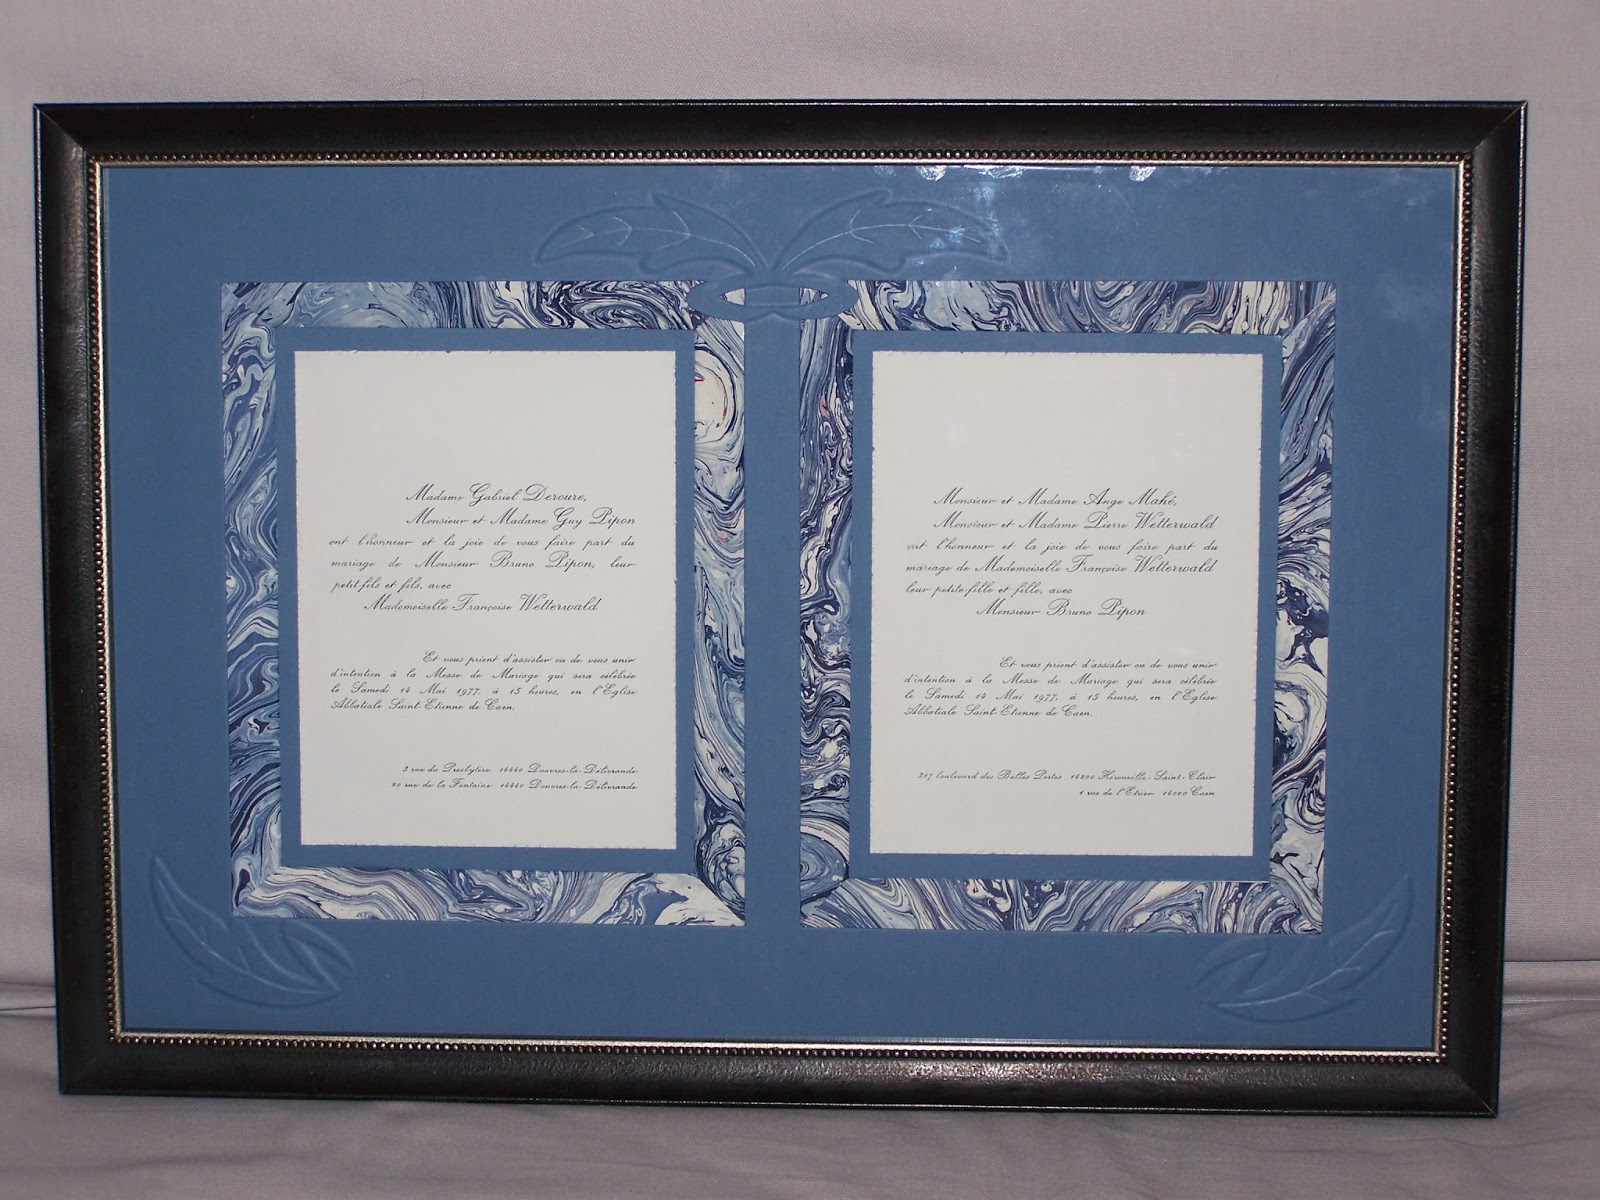 Madame Gabriel Deroure,
Monsieur et Madame Guy Pipon
ont l'honneur et la joie de vous faire part du
mariage de Monsieur Bruno Pipon, leur
petit-fils et fils, avec
Mademoiselle Françoise Wetterwald
Et vous prient d'assister ou de vous unir
d'intention à la Messe de Mariage qui sera célébrée
le Samedi 14 Mai 1977, à 15 heures, en l'Eglise
Abbatiale Saint-Etienne de Caen.
3 rue du Presbytère 14440 Douvres-la-Délivrande
20 rue de la Fontaine 14440 Douvres-la-Délivrande
Monsieur et Madame Ange Mahé,
Monsieur et Madame Pierre Wetterwald
ont l'honneur et la joie de vous faire part du
mariage de Mademoiselle Françoise Wetterwald
leur petite-fille et fille, avec
Monsieur Bruno Pipon
Et vous prient d'assister ou de vous unir
d'intention à la Messe de Mariage qui sera célébrée
le Samedi 14 Mai 1977, à 15 heures, en l'Eglise
Abbatiale Saint-Etienne de Caen.
247 boulevard des Belles Portes 14200 Hérouville-Saint-Clair
1 rue de l'Etrier 14000 Caen